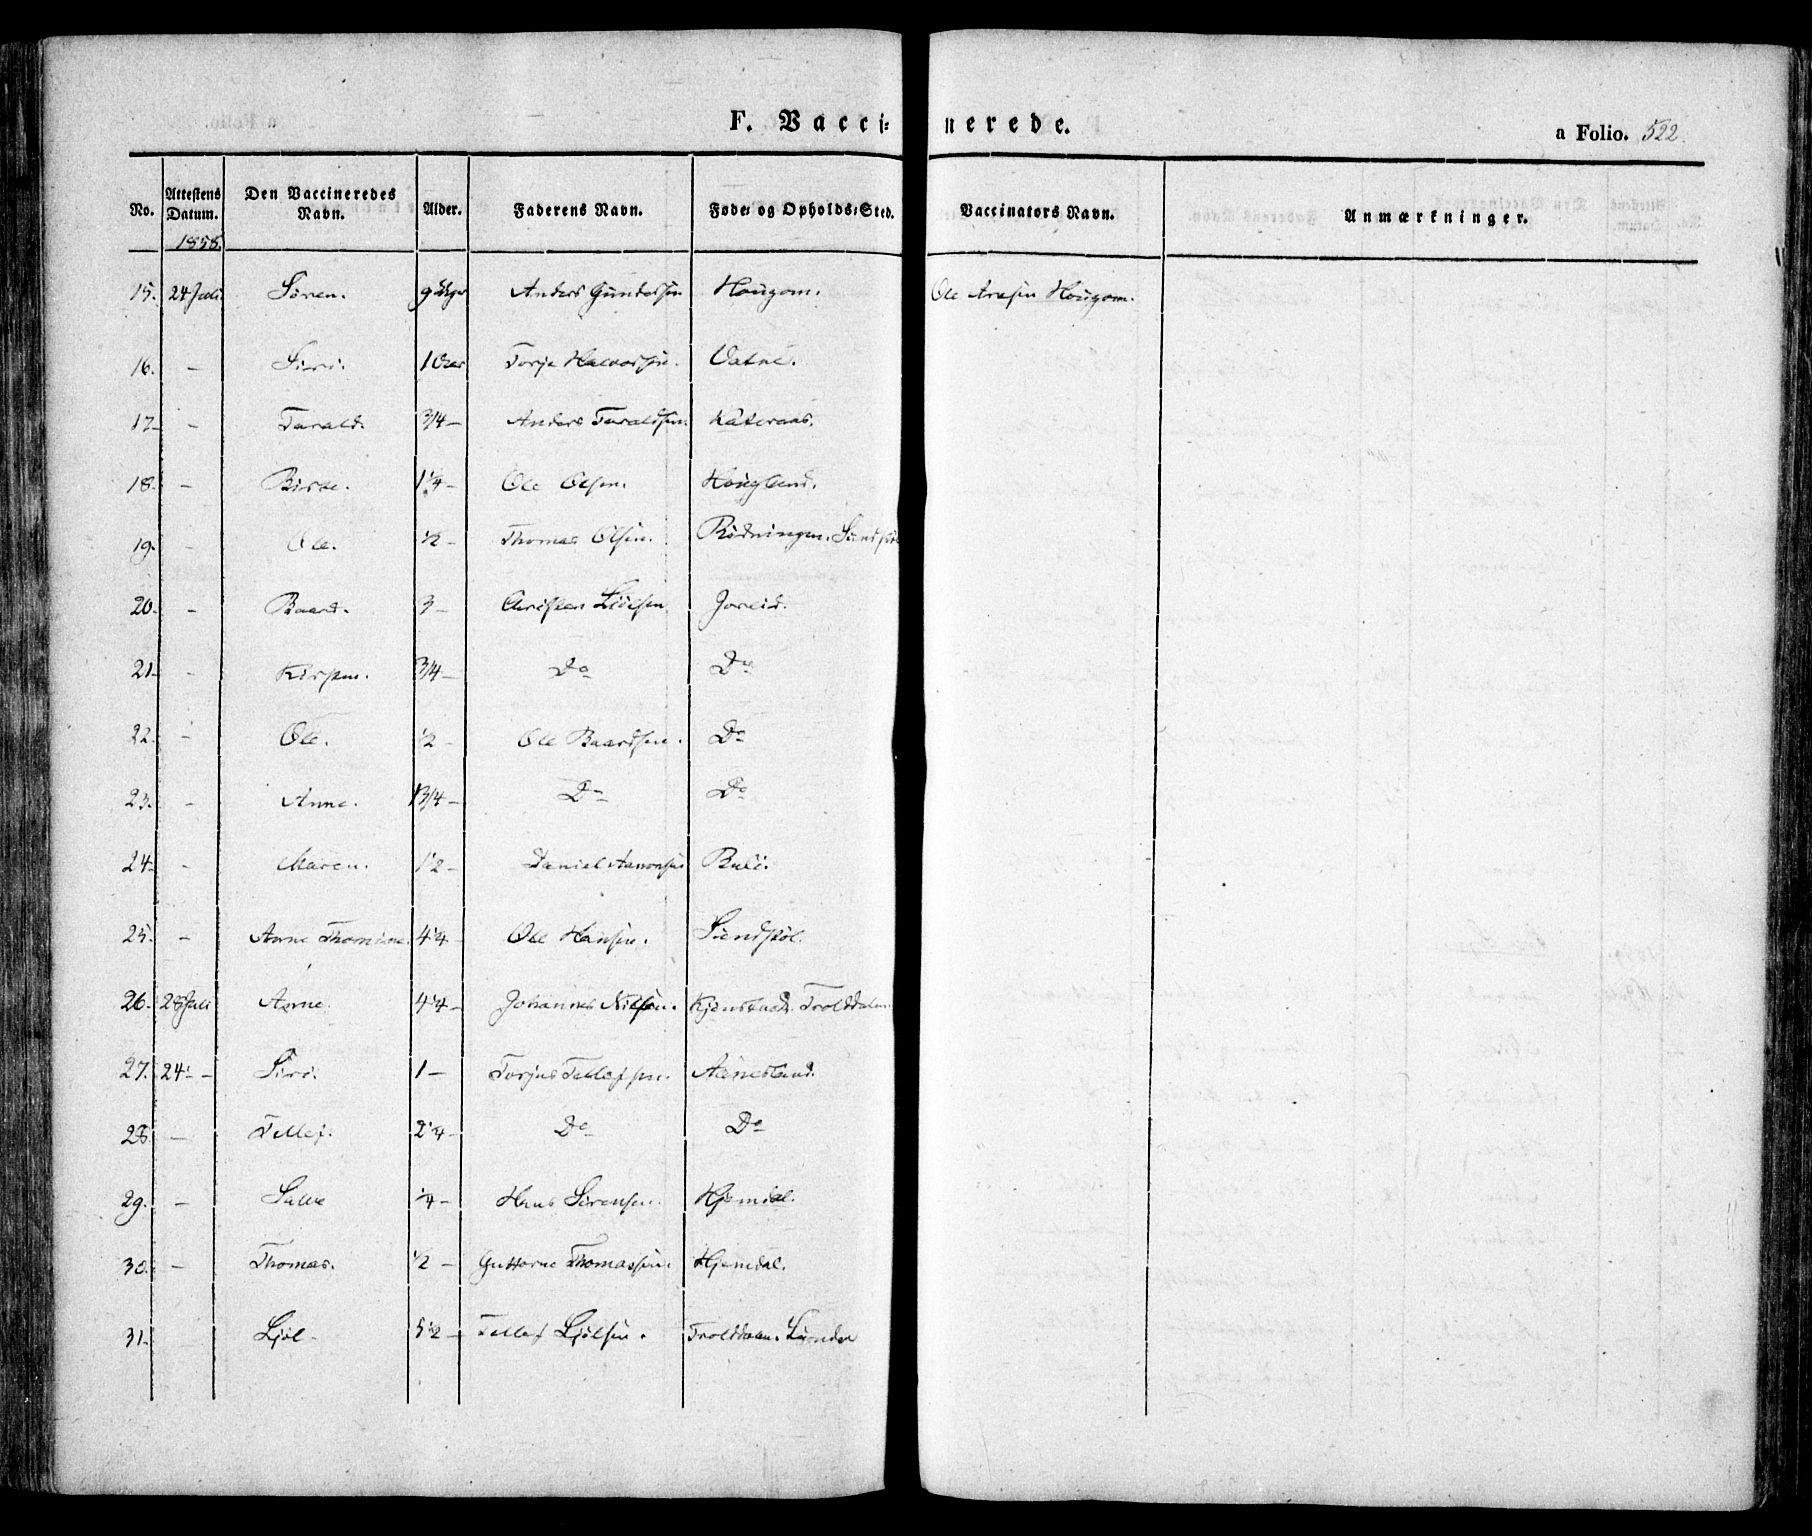 F. Vacci= nerede.
a Folio. 522
No. Attestens Datum. Den Vaccineredes Navn. Alder. Faderens Navn. Føde= og Opholds=Sted. Vaccinators Navn. Anmærkninger.
1858.
15. 24 Juli Sören. 9 Uger Anders Gundersen Hougom. Ole Aresen Hougom.
16. - Siri. 1 Torje Halvorsen. Vatne.
17 - Tarald. 3/4 - Anders Taraldsen.
18. - Birte. 1 1/4 - Ole Olsen. Hougland.
19. - Ole. 1/2 - Thomas Olsen. Rödningen.
20. - Baard. 3 - Christen Liölsen Joreid.
21 - Kirsten. 3/4 - Do Do
22. - Ole. 1/2 - Ole Baardsen. Do
23. - Anne. 1 3/4 - Do Do
24 - Maren. 1/2 - Daniel Aanonsen
25. - Anne Thomine. 4 1/4 - Ole Hansen.
26. 28 Juli Anne. 4 1/4 - Johannes Nilsen. Trolddalen
27. 24 - Siri. 1 - Torjus Tellefsen. Aaneland.
28 - Tellef. 2 1/4 - Do Do
29. - Salve 1/4 - Hans Sörensen. Hjemdal.
30. - Thomas. 1/2 - Guttorm Thomassen. Hjemdal.
31. Ljöl - 5 1/2 - Tellef Ljölsen. Trolddalen.